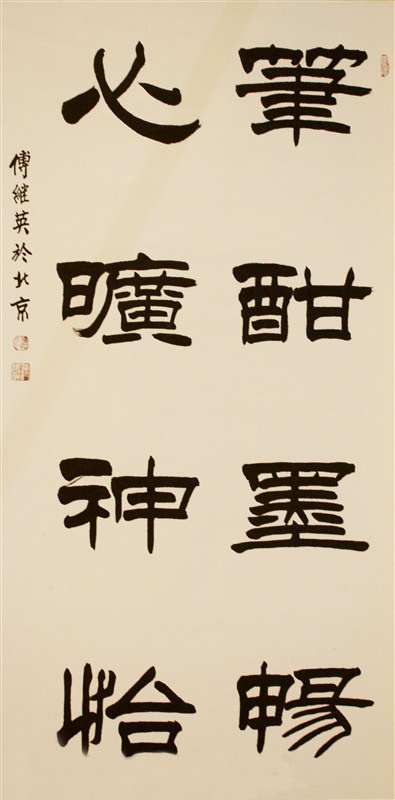 筆酣墨暢
心曠神怡
傅继英於北京